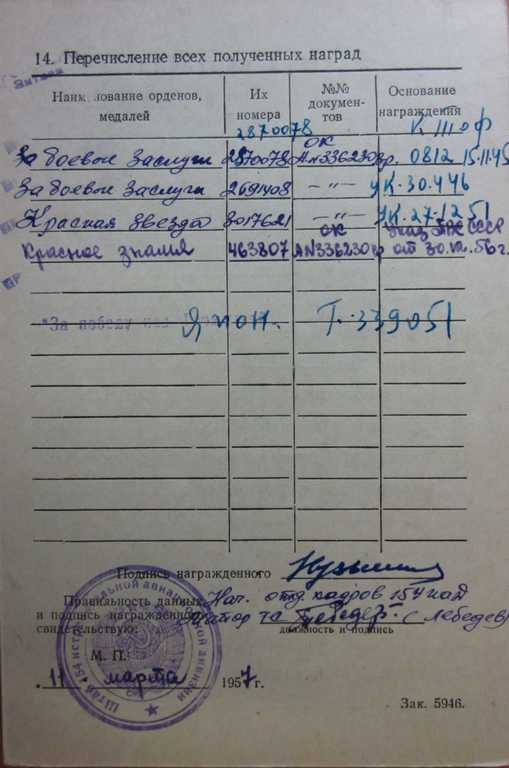 14. Перечисление всех полученных наград
Наименование орденов, медалей
Их номера
№№ документов
Основание награждения
2870078 К ТОФ
За боевые заслуги 2870078 ОК А№336230 пр. 0812 15.11.45
За боевые заслуги 2691408 -〃- УК. 30.4.46
Красная звезда 3017621 -〃- УК. 27.12.51
Красное знамя 463807 ОК А№336230 Указ ПВС СССР от 30.12.56 г.
"За победу над Япон. Г. 339051
Подпись награжденного
Правильность данных Нач. отд. кадров 154 иад
и подпись награжденного
свидетельствую: (Лебедев)
должность и подпись
М. П.
11 марта 1957 г.
Зак. 5946.